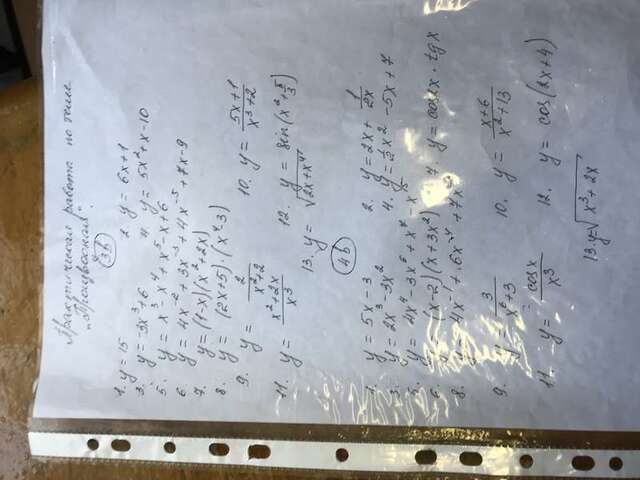 Практическая работа по теме
„Производная".
3в
1. y = 15 2. y = 6x+1
3. y = -3x³+6 4. y = 5x²+x-10
5. y = x³-x⁴+x⁵-x+6
6. y = 4x⁻²+3x⁻³+4x⁻⁵+7x-9
7. y = (1-x)(x²+2x)
8. y = (2x+5)·(x⁴-3)
9. y = 2/(x²+2) 10. y = (5x+1)/(x³+2)
11. y = (x²+2x)/x³ 12. y = sin(x²+π/3)
13. y = √(2x+x⁴)
4в
1. y = 5x-3 2. y = 2x+1/(2x)
3. y = 2x³-3x² 4. y = ½x²-5x+7
5. y = 4x⁴-3x⁶+x⁷-x¹⁵
6. y = (x-2)(x+3x²) 7. y = cosx·tgx
8. y = 4x⁻¹+6x⁻⁴+7x
9. y = 3/(x⁶+3) 10. y = (x+6)/(x²+13)
11. y = cosx/x³ 12. y = cos(2x+4)
13. y = √(x³+2x)